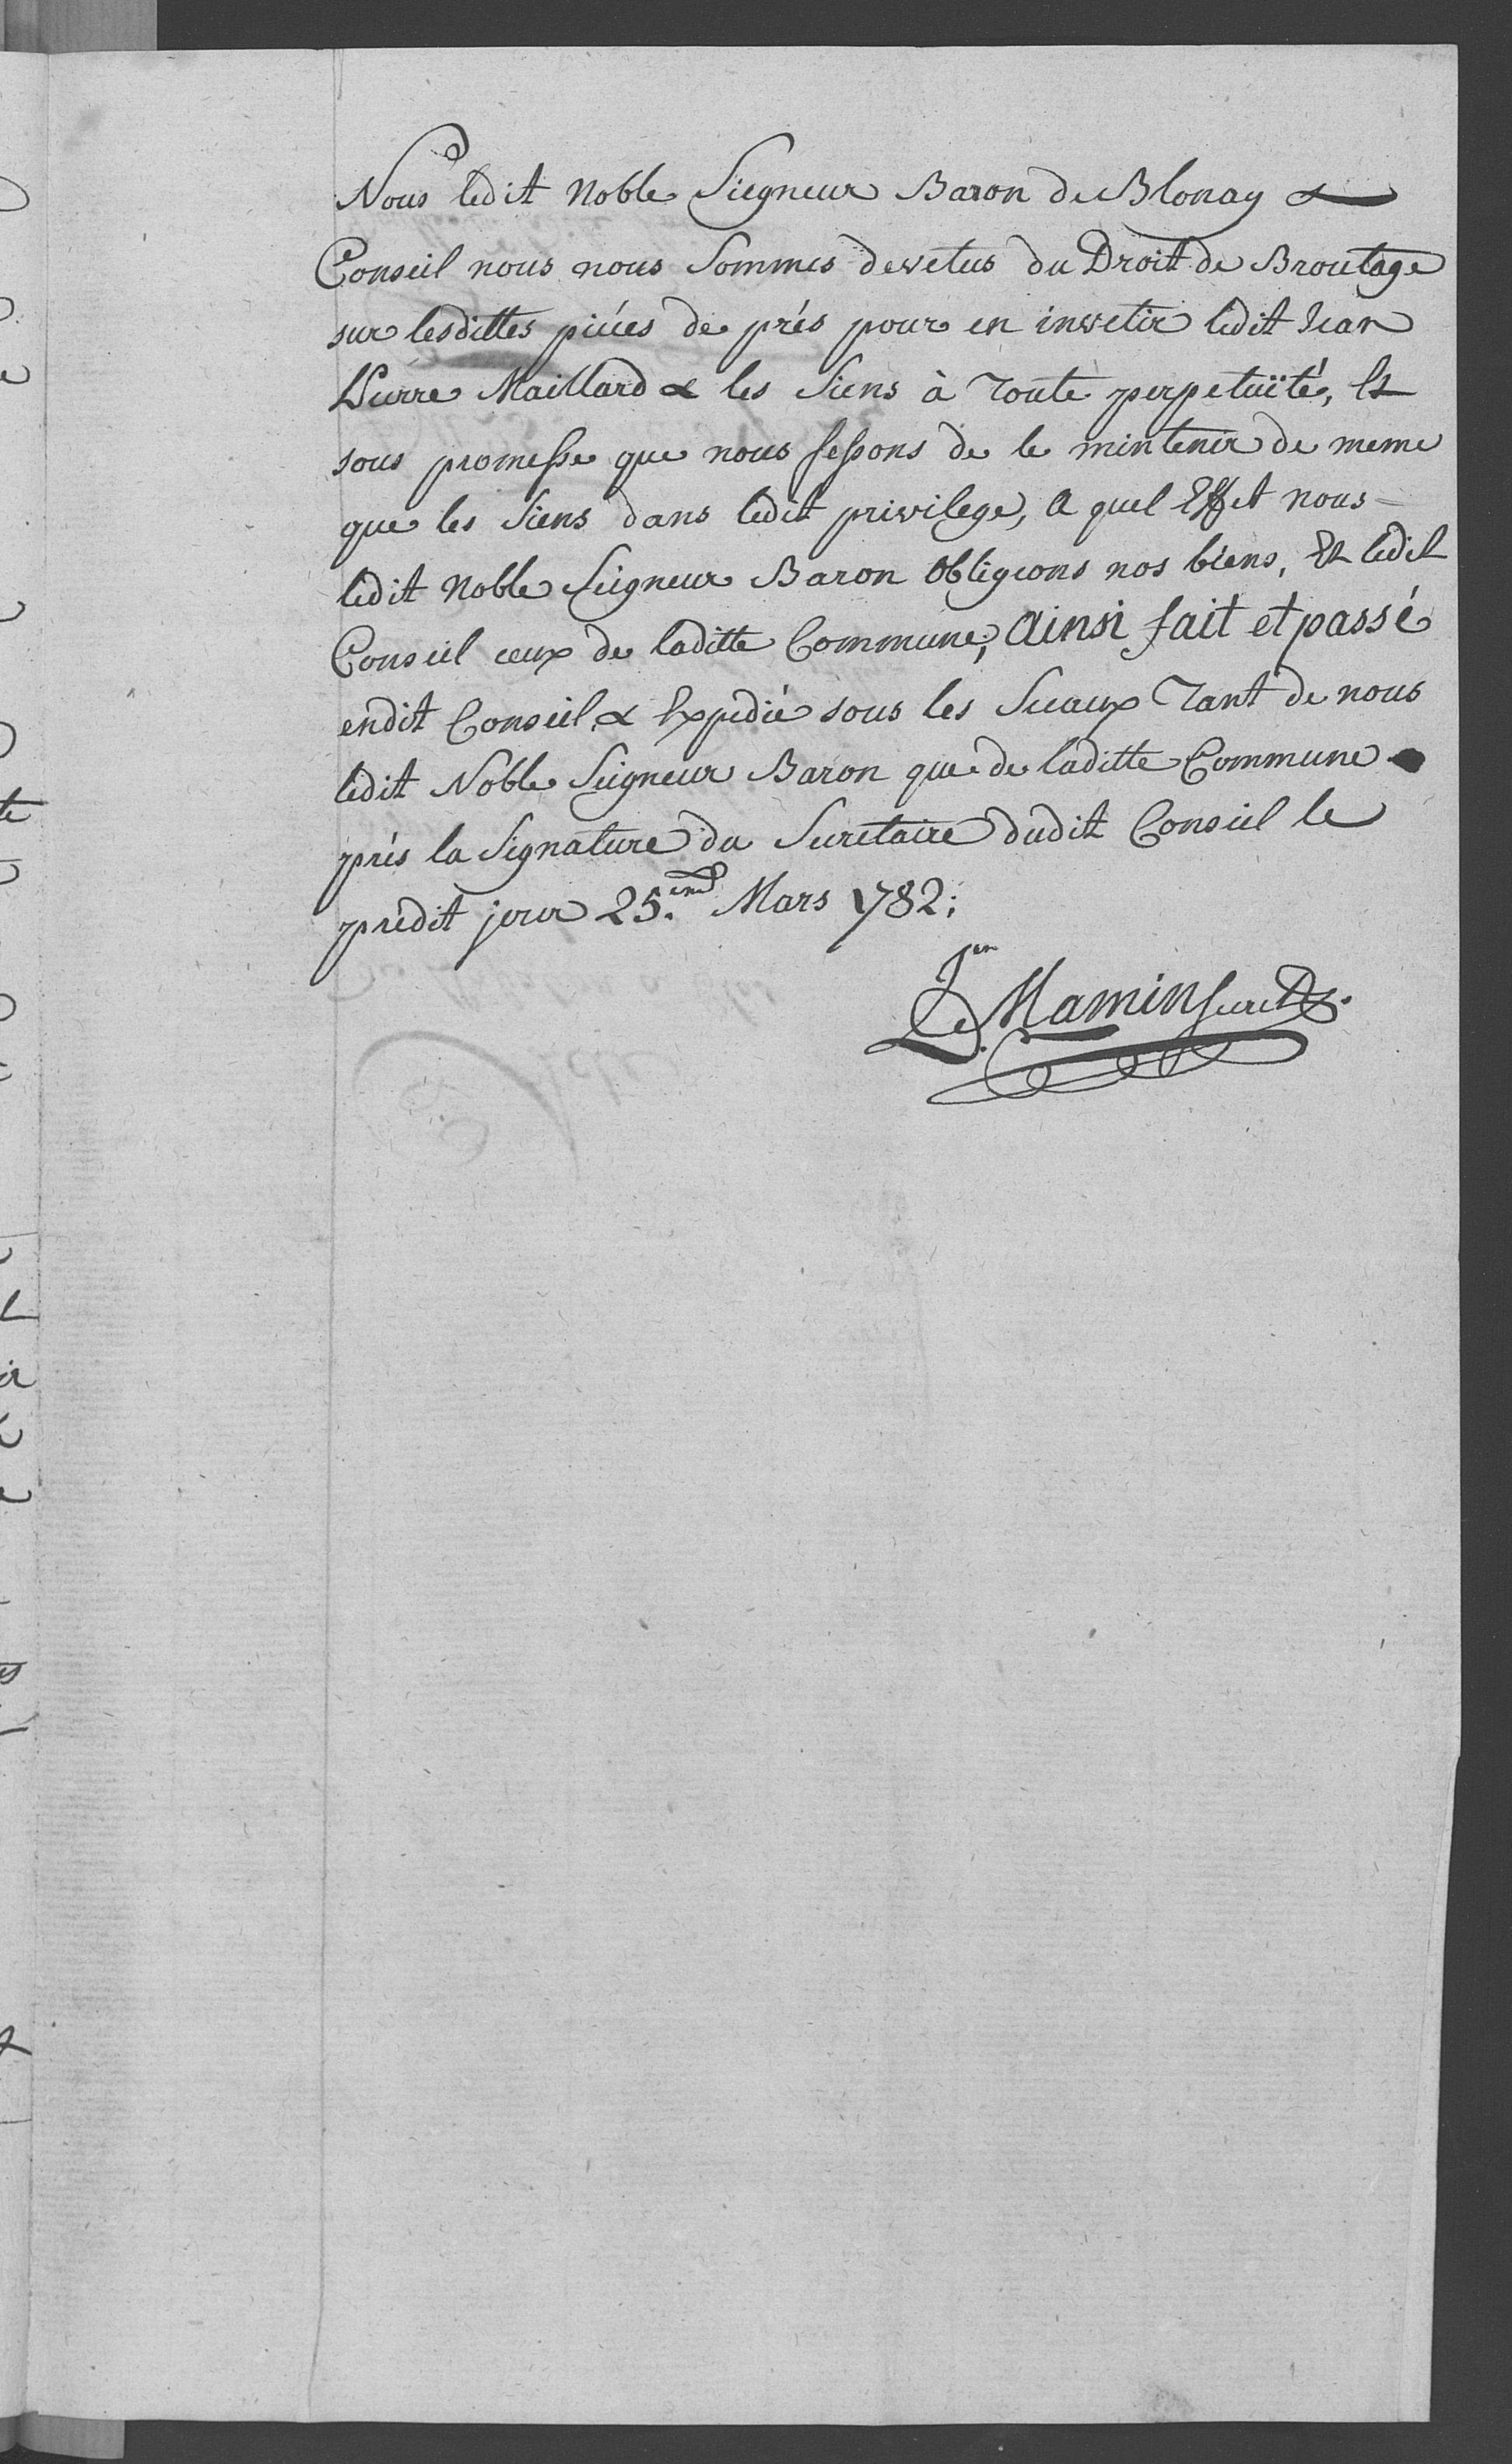 Nous ledit Noble Siegneur Baron de Blonay &
Conseil nous nous Sommes devetus du Droit de Broutage
sur lesdittes piéces de prés pour en investir ledit Jean
Pierre Maillard & les Siens à Toute perpetuïté, Et
sous promesse que nous fessons de le mintenir de meme
que les Siens dans ledit privilege, A quel Effet nous
ledit Noble Seigneur Baron Obligeons nos biens, Et ledit
Conseil ceux de laditte Commune; Ainsi fait et passé
endit Conseil & Expedié sous les Sceaux Tant de nous
ledit Noble Seigneur Baron que de laditte Commune
prés la Signature du Secretaire dudit Conseil le
prédit jour 25.eme Mars 1782;
Mamin